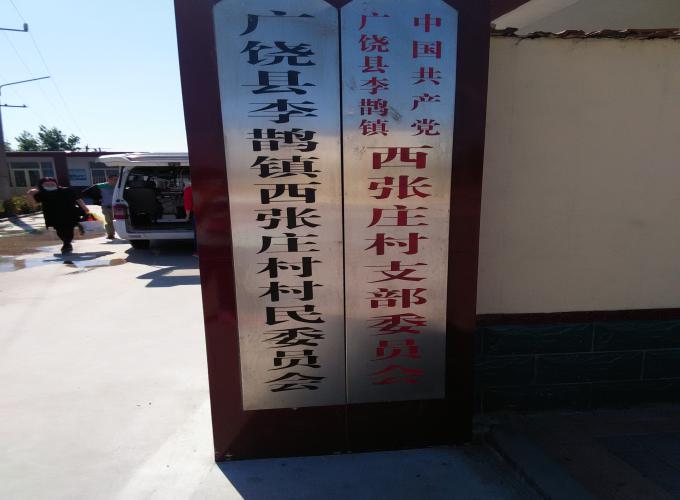 广饶县李鹊镇西张庄村村民委员会
中国共产党
广饶县李鹊镇
西张庄村支部委员会